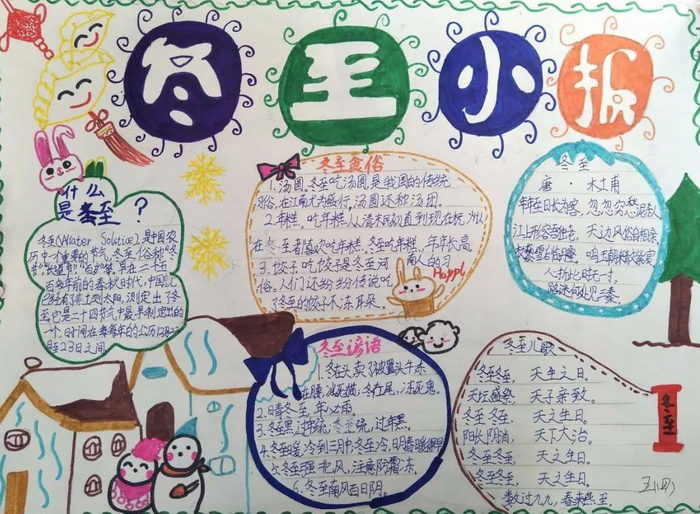 冬至小报
什么
是冬至？
冬至(Winter Solstice),是中国农
历中一个重要的节气,冬至俗称"冬
百多年前的春秋时代,中国就
已经用土圭测太阳,测定出了冬
至它是二十四节气中最早制定出的
一个,时间在每年的公历12月22
日至23日之间
冬至食俗
1.汤圆。冬至吃汤圆,是我国的传统
习俗,在江南尤为盛行,汤圆还称汤团。
2.年糕。吃年糕从清末民初直到现在杭州人
在冬至都喜欢吃年糕。冬至吃年糕,年年长高
3.饺子.吃饺子是冬至河
南人的习
俗。人们还纷纷传说吃
了冬至的饺子不冻耳朵。
Happy
冬至
唐·杜甫
年年至日长为客,忽忽穷愁泥杀人
江上形容吾独老,天边风俗自相亲
杖藜雪后临丹壑,鸣玉朝来散紫宸
心折此时无一寸,
路迷何处见三秦
冬至谚语
2.晴冬至,年必雨。
4.冬至暖,冷到三月中;冬至冷,明春暖得早
5.冬至强北风,注意防霜冻。
6.冬至南风百日阴。
冬至儿歌
冬至冬至, 天生之日。
天坛盛祭, 天子亲致。
冬至冬至, 天之生日。
阳长阴消, 天下大治。
冬至冬至, 天之生日。
冬至冬至, 天之生日。
数过九九,春来燕至。
冬至